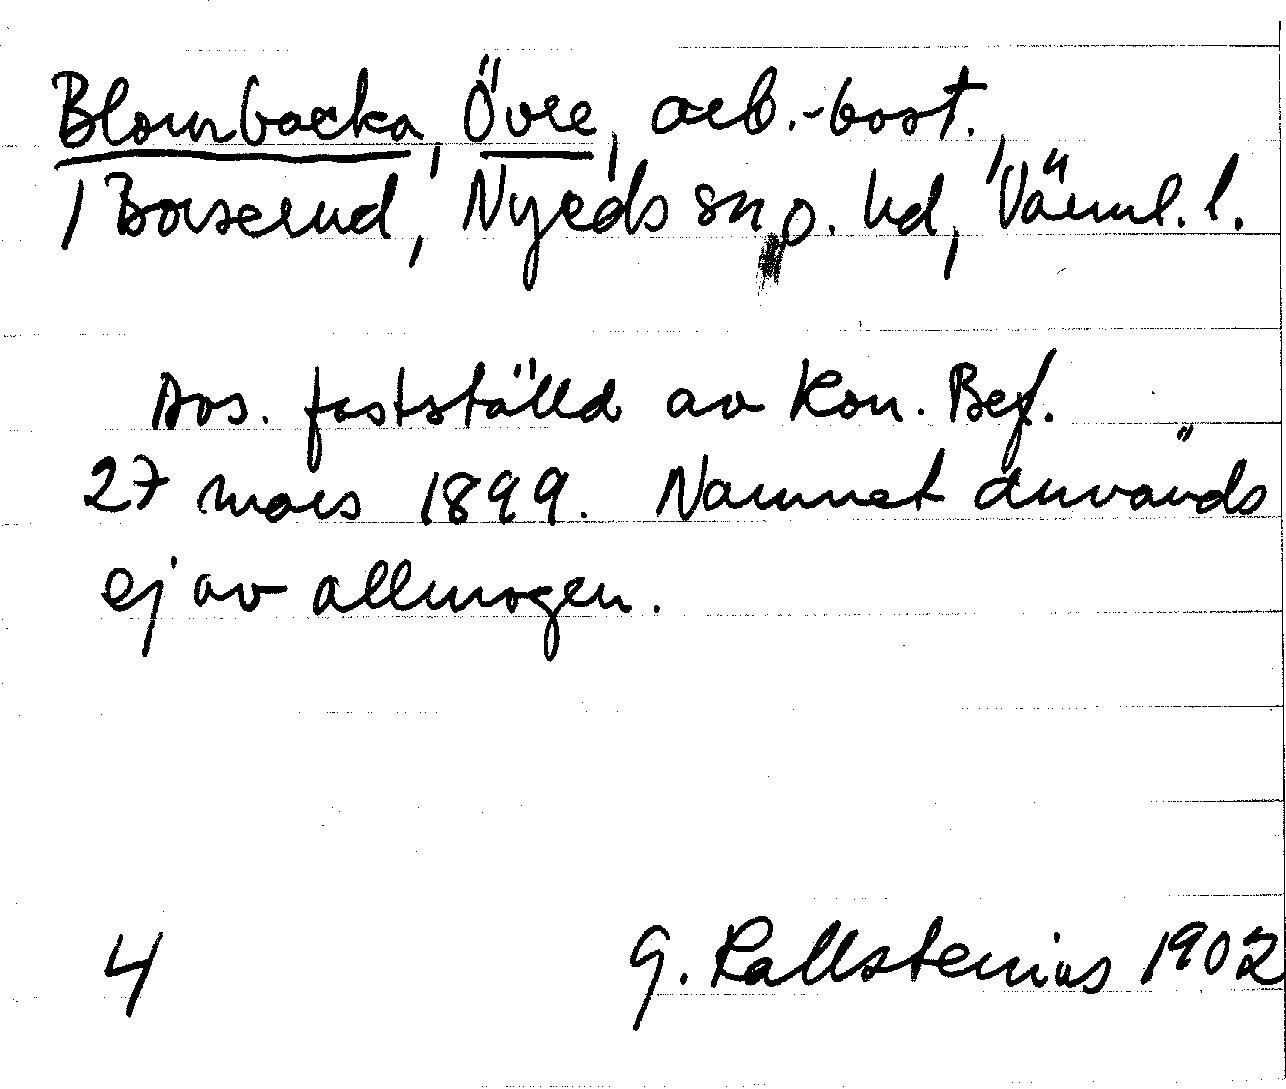 Blombacka, Övre, arb.-bost.
/ Borserud, Nyeds sn o. hd, Värml. l.
Avs. fastställd av Kon. Bef.
27 mars 1899. Namnet används
ej av allmogen.
4 G. Kallstenius 1902